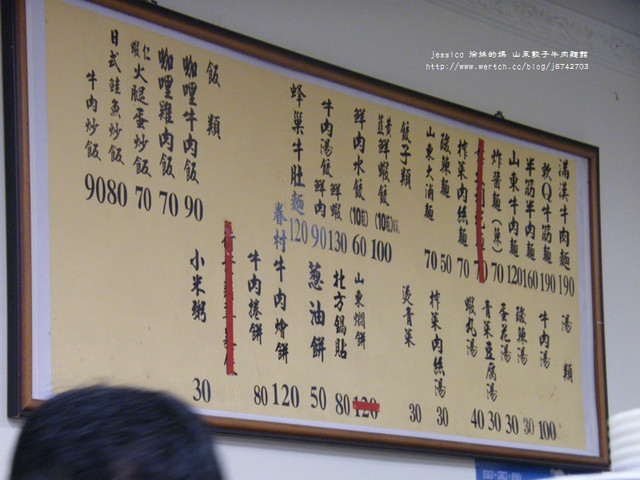 jessica 徐妹的媽 山東餃子牛肉麵館
http://www.wertch.cc/blog/j6742703
滿漢牛肉麵 190
軟Q牛筋麵 190
半筋半肉麵 160
山東牛肉麵 120
炸醬麵(辣) 70
70
榨菜肉絲麵 70
酸辣麵 50
山東大滷麵 70
餃子類
韮黃鮮蝦餃(10粒) 100
鮮肉水餃(10粒) 60
牛肉湯餃 鮮蝦 130 鮮肉 90
蜂巢牛肚麵 120
飯類
咖哩牛肉飯 90
咖哩雞肉飯 70
蝦仁火腿蛋炒飯 70
日式鮭魚炒飯 80
牛肉炒飯 90
湯類
牛肉湯 100
酸辣湯 30
蛋花湯 30
青菜豆腐湯 30
蝦丸湯 40
榨菜肉絲湯 30
燙青菜 30
山東燜餅 120
北方鍋貼 80
蔥油餅 50
眷村牛肉燴餅 120
牛肉捲餅 80
小米粥 30